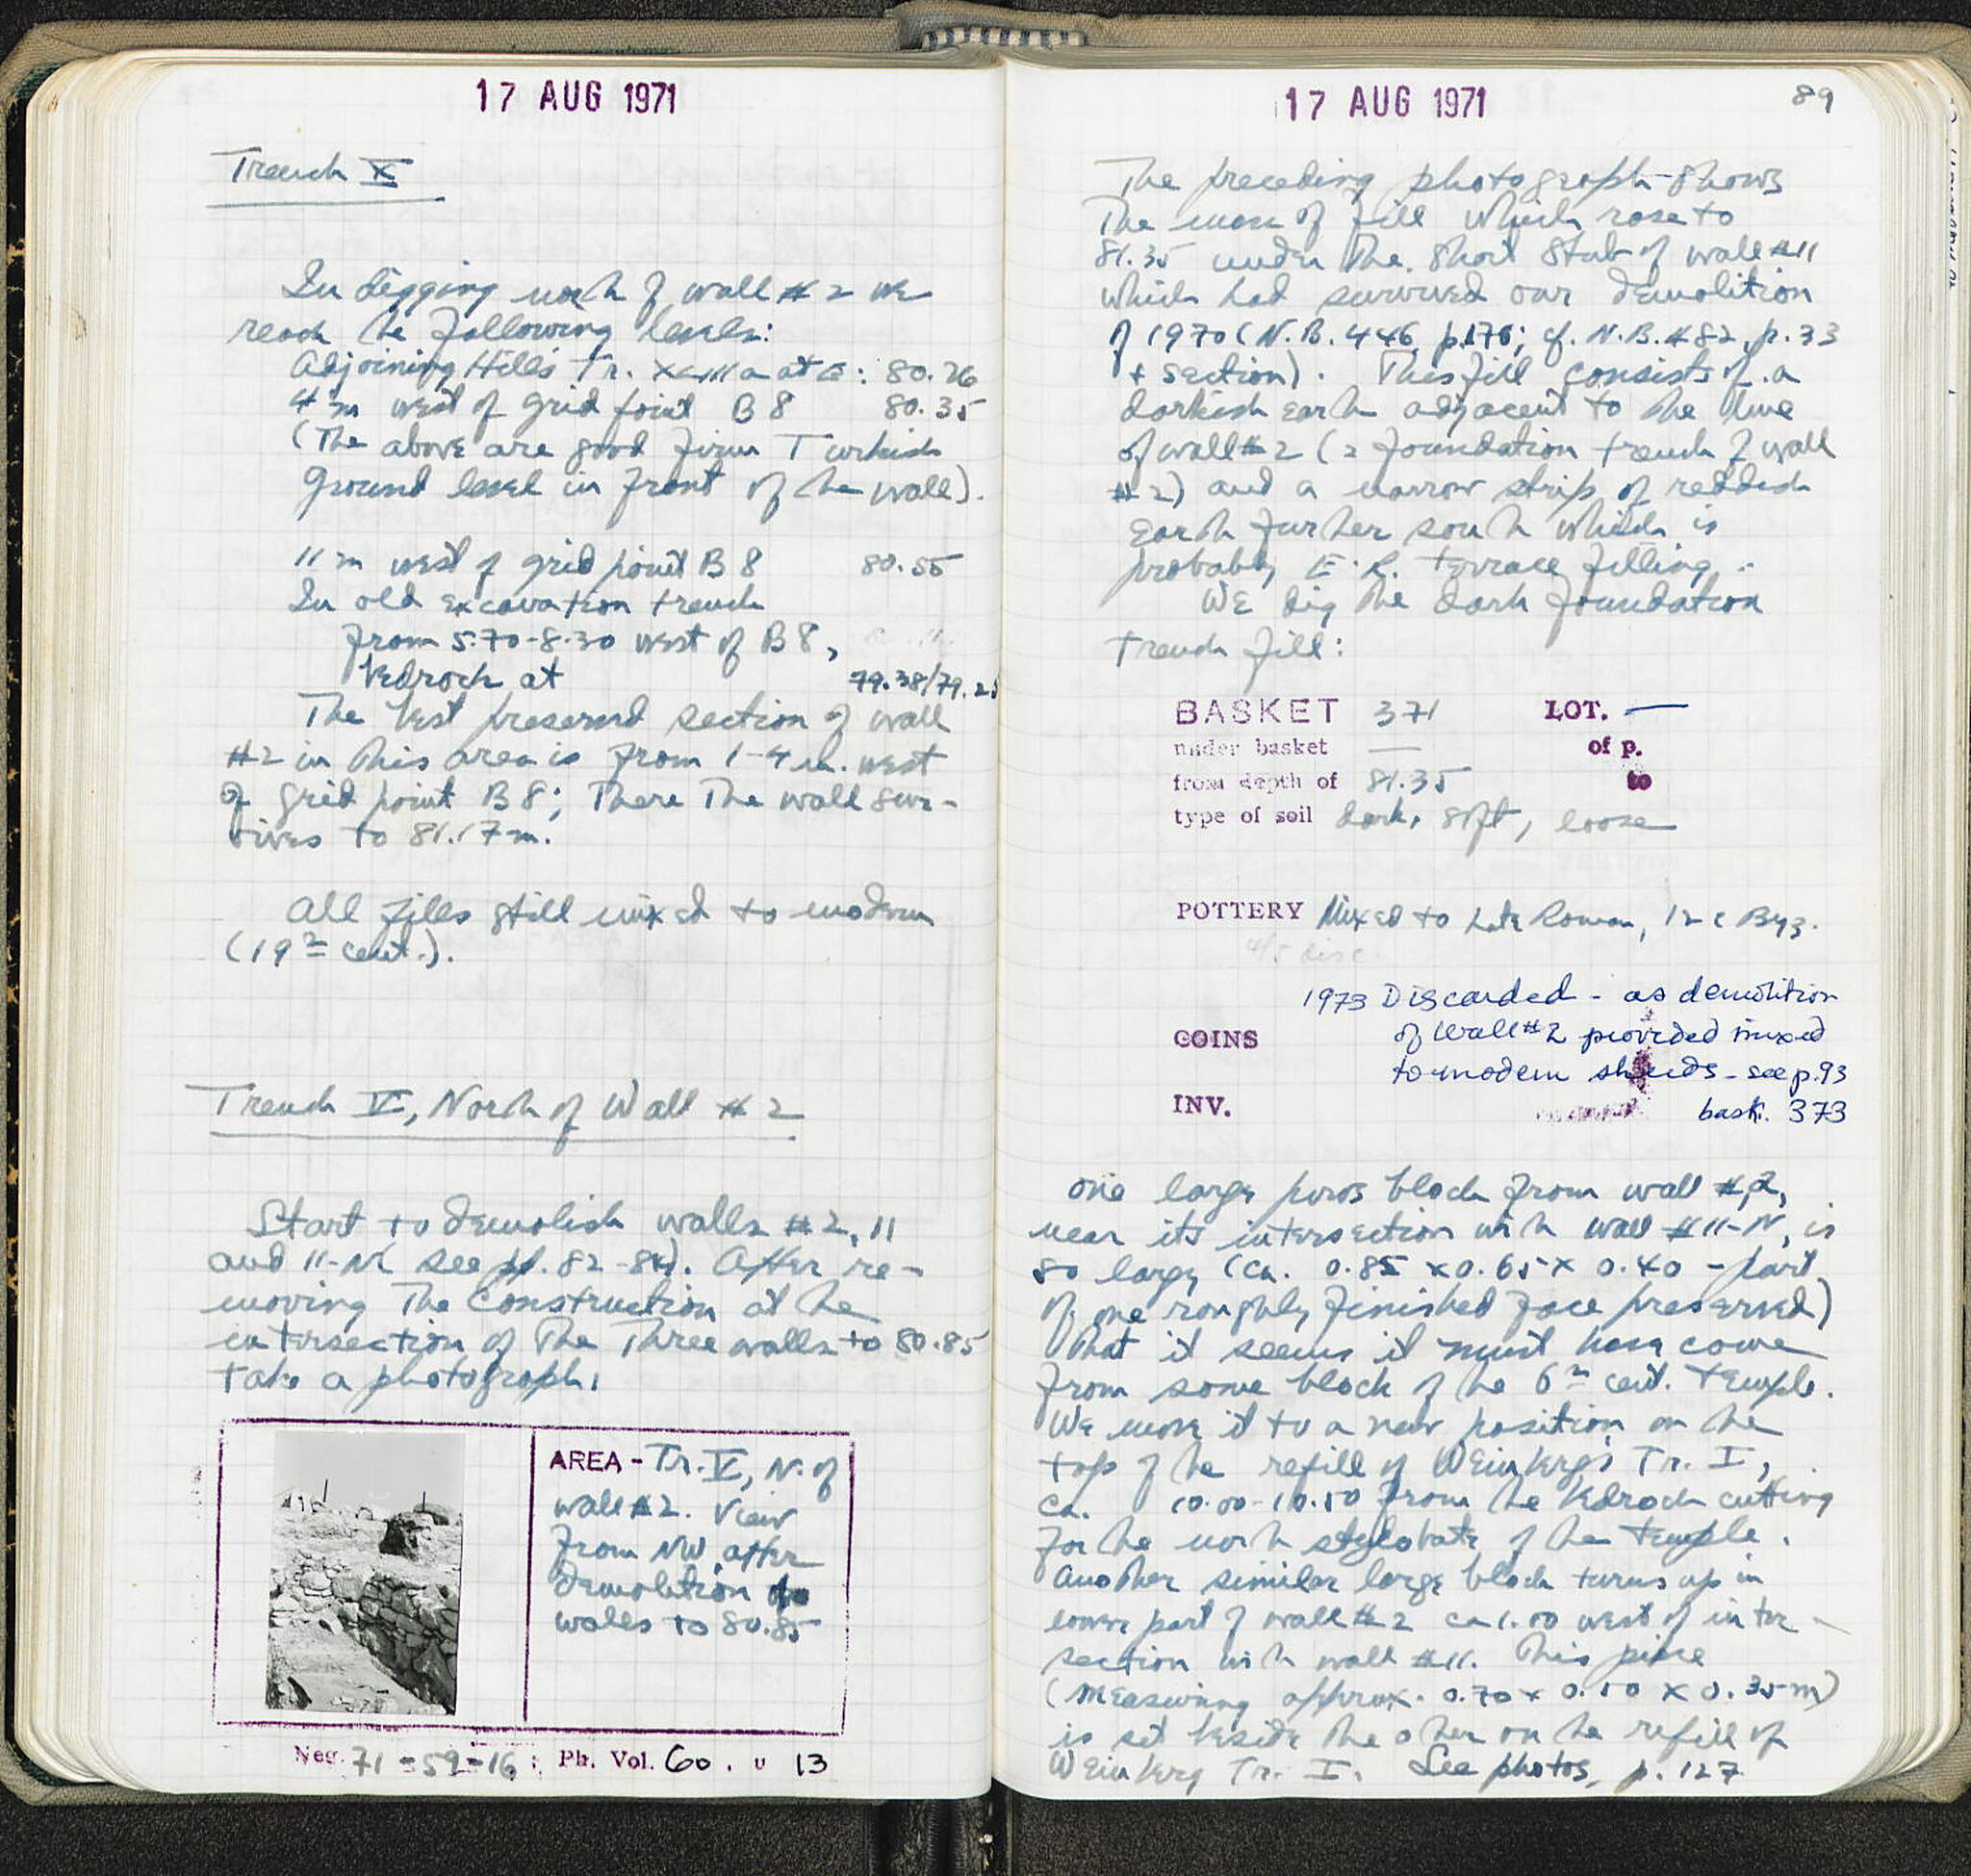 17 AUG 1971
Trench X
In digging north of wall #2 we
reach the following levels:
Adjoining Hill's Tr. at E: 80.26
4 m west of grid point B 8 80.35
(The above are good firm Turkish
Ground level in front of the wall).
11 m west of grid point B 8 80.55
In old excavation trench
from 5.70-8.30 west of B 8,
bedrock at 79.38/79.25
The best preserved section of wall
#2 in this area is from 1-4 m. west
of grid point B 8; There The wall sur-
vives to 81.17 m.
All fills still mixed to modern
(19th cent.).
Trench V, North of Wall #2
Start to demolish walls #2, 11
and 11-N (see pp. 82-84). After re-
moving The construction at the
intersection of The Three walls to 80.85
take a photograph.
AREA - Tr. V, N. of
wall #2. View
from NW, after
demolition of
walls to 80.85
Neg. 71-59-16; Ph. Vol. 60, p 13
17 AUG 1971
89
The preceding photograph shows
The mass of fill which rose to
81.35 under The short stub of wall #11
which had survived our demolition
of 1970 (N.B. 446, p.176; cf. N.B. #82, p. 33
+ section). This fill consists of a
darkish earth adjacent to the line
of wall #2 (= foundation trench of wall
#2) and a narrow strip of reddish
earth further south which is
probably E.R. terrace filling.
We dig the dark foundation
trench fill:
BASKET 371 LOT. —
under basket — of p.
from depth of 81.35 to
type of soil dark, soft, loose
POTTERY Mixed to Late Roman, 12 c Byz.
4/5 disc.
1973 Discarded - as demolition
COINS of wall #2 provided mixed
to modern sherds - see p. 93
INV. bask. 373
one large poros block from wall #2,
near its intersection with wall #11-N, is
so large (ca. 0.85 x 0.65 x 0.40 - part
of one roughly finished face preserved)
that it seems it must have come
from some block of the 6th cent. temple.
We move it to a new position on the
top of the refill of Weinberg's Tr. I,
ca. 10.00-10.50 from the bedrock cutting
for the north stylobate of the temple.
Another similar large block turns up in
lower part of wall #2 ca 1.00 west of inter-
section with wall #11. This piece
(measuring approx. 0.70 x 0.50 x 0.35 m)
is set beside the other on the refill of
Weinberg Tr. I. See photos, p. 127